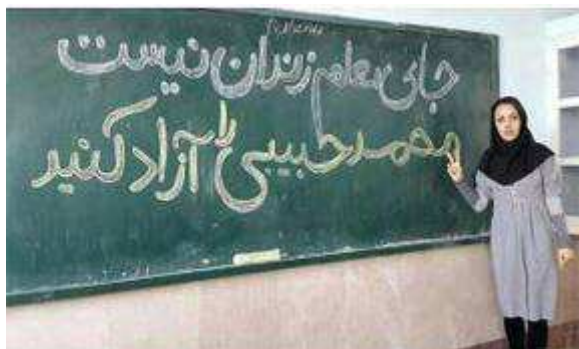 جای معلم زندان نیست
محمد حبیبی را آزاد کنید